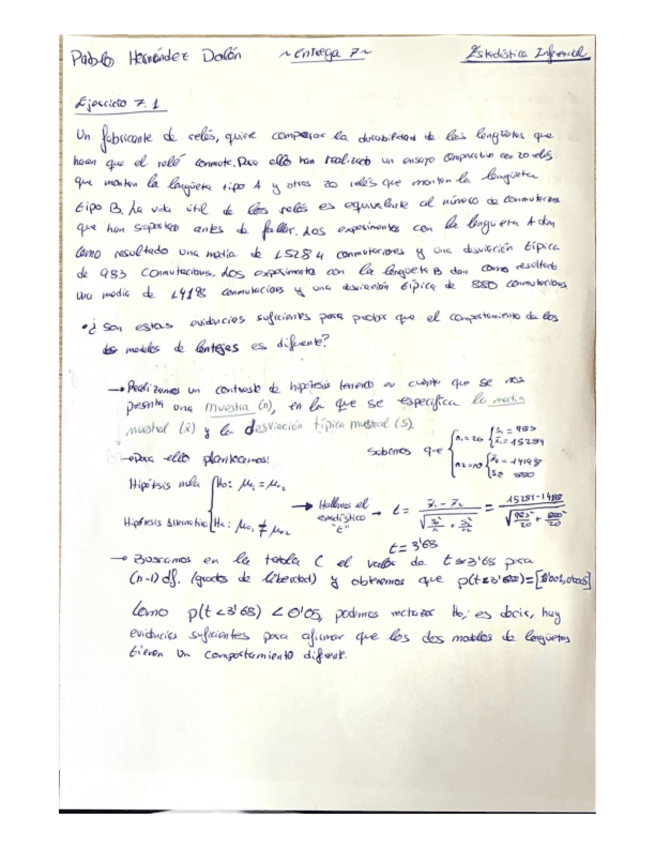 Pablo Hernández Dolón ~Entrega 7~ Estadística Inferencial
Ejercicio 7.1
Un fabricante de relés, quiere comparar la durabilidad de las lengüetas que
hacen que el relé conmute. Para ello han realizado un ensayo comparativo con 20 relés
que montan la lengüeta tipo A y otros 20 relés que montan la lengüeta
tipo B. La vida útil de los relés es equivalente al número de conmutaciones
que han soportado antes de fallar. Los experimentos con la lengueta A dan
como resultado una media de 15284 conmutaciones y una desviación típica
de 983 conmutaciones. Los experimentos con la lengüeta B dan como resultado
una media de conmutaciones y una desviación típica de 880 conmutaciones
• ¿Son estas evidencias suficientes para probar que el comportamiento de los
modelos de es diferente?
→ Realizamos un contraste de hipótesis teniendo en cuenta que se nos
presenta una muestra (n), en la que se especifica la media
muestral (x̄) y la desviación típica muestral (S).
→ Para ello planteamos: Sabemos que { n₁=20 { S₁ = 983 x̄₁ = 15284
Hipótesis nula { H₀: μ₁ = μ₂
→ Hallamos el estadístico "t" → t = (x̄₁ - x̄₂) / √(S₁²/n + S₂²/n) =
Hipótesis alternativa
t = 3'68
→ Buscamos en la tabla C el valor de para
(n-1) df. (grados de libertad) y obtenemos que
Como p(t<3'68) < 0'05, podemos rechazar H₀, es decir, hay
evidencias suficientes para afirmar que los dos modelos de lengüetas
tienen un comportamiento diferente.